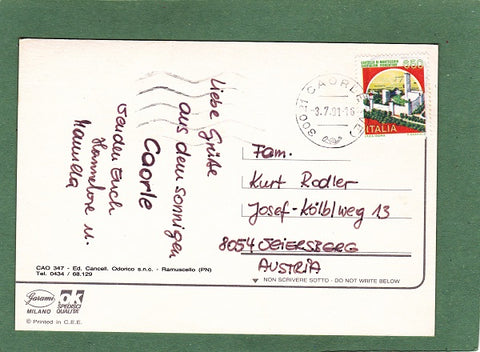 Liebe Grüße
aus dem sonnigen
Caorle
senden Euch
Hannelore u.
Manuela
CASTELLO DI MONTECCHIO
CASTIGLION FIORENTINO
650
ITALIA
30021 CAORLE
-3.7.91-16
Fam.
Kurt Rodler
Josef-Kölblweg 13
8054 SEIERSBERG
AUSTRIA
CAO 347 - Ed. Cancell. Odorico s.n.c. - Ramuscello (PN)
Tel. 0434 / 68.129
NON SCRIVERE SOTTO - DO NOT WRITE BELOW
Garami
MILANO
ok
SPEDISCI
QUALITÀ
© Printed in C.E.E.